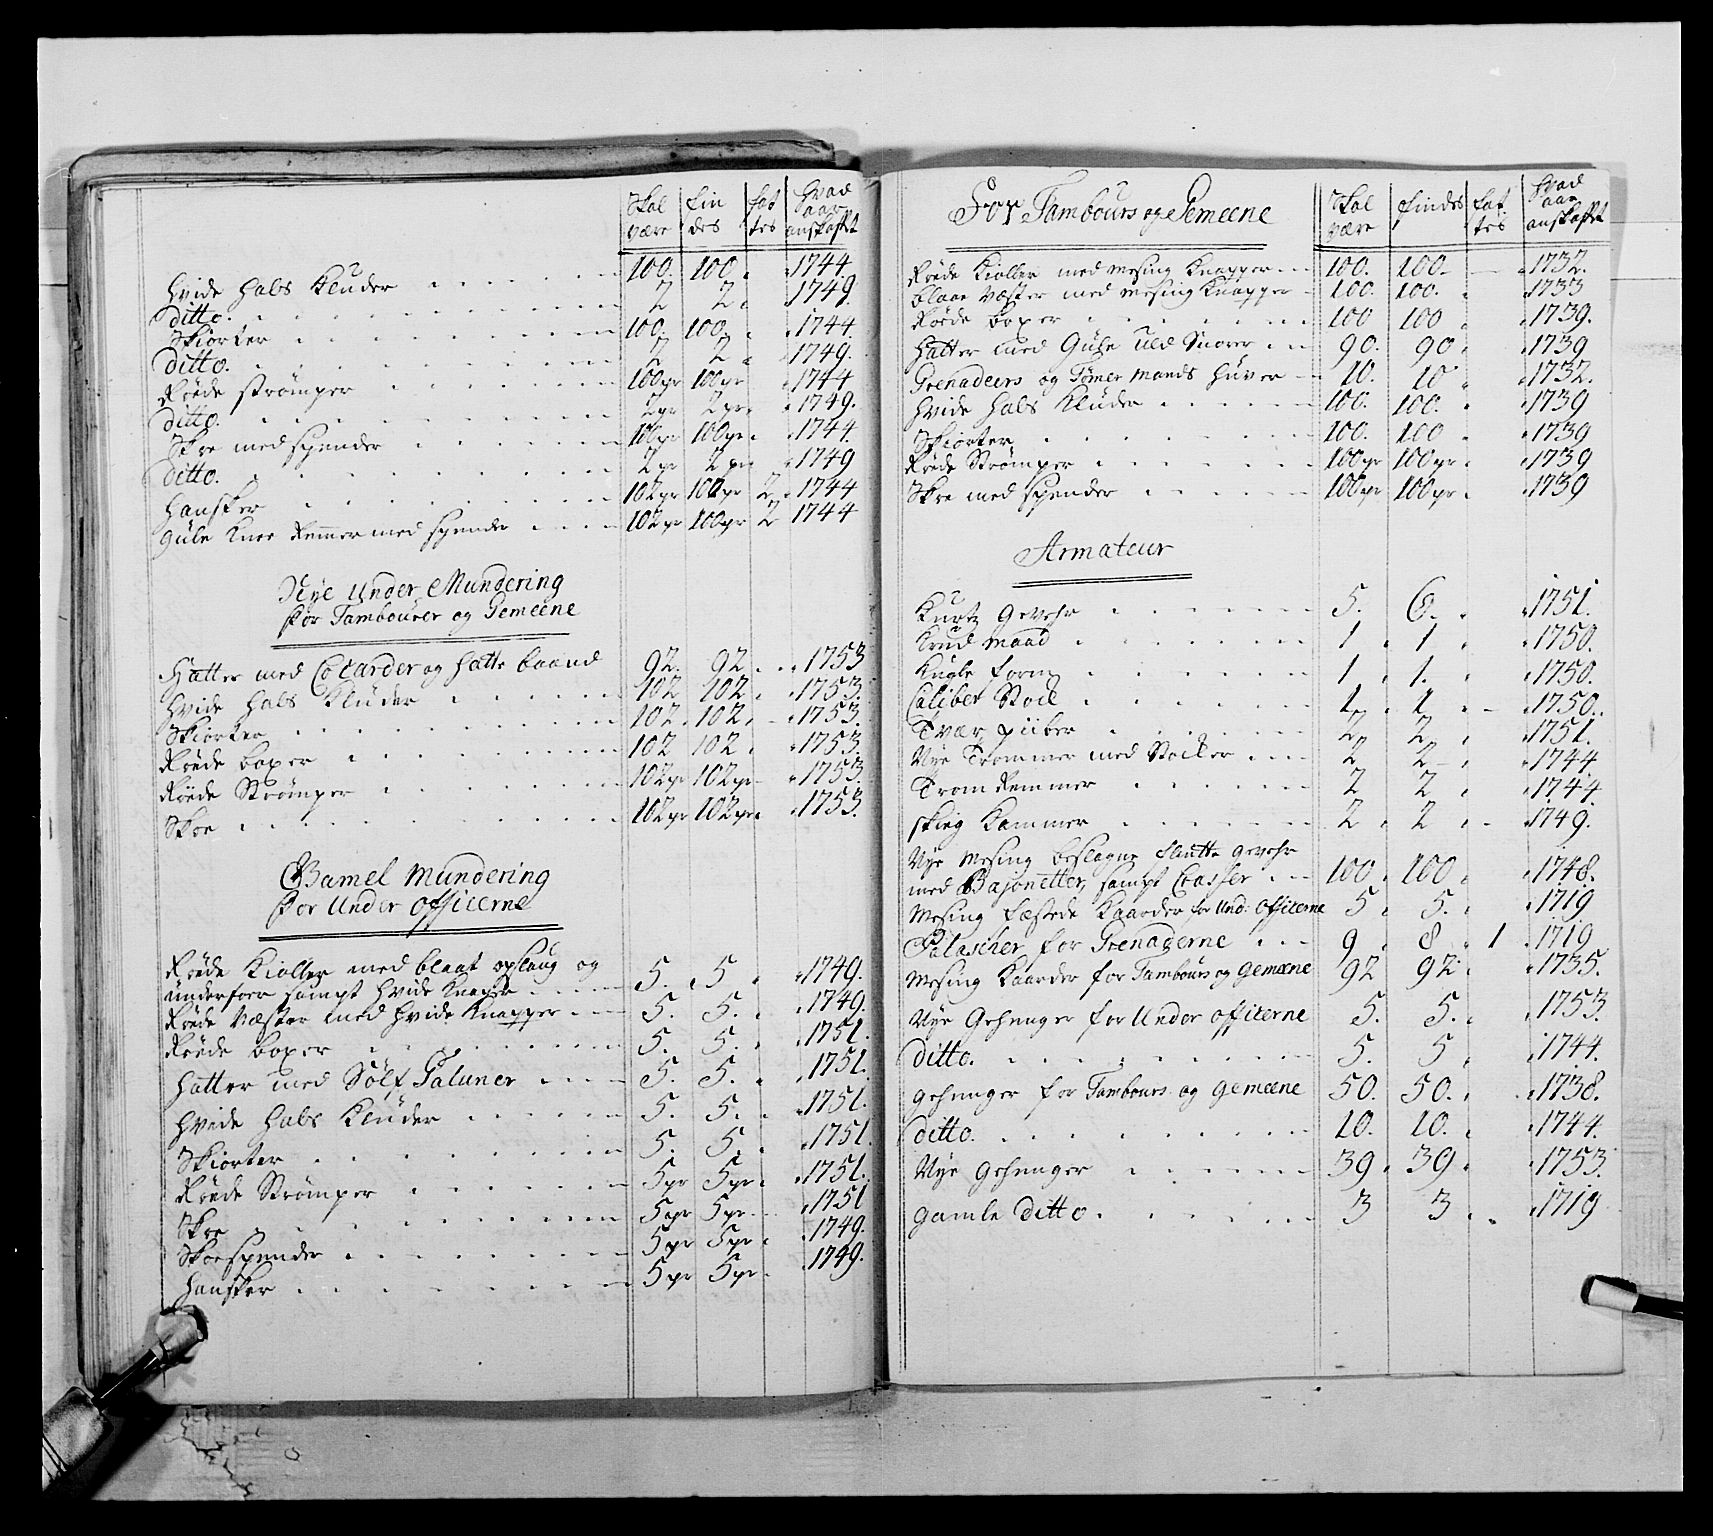 Skal være | Findes | Fattes | Hvad aar anskaffet
Hvide Hals Klüder . . . 100. 100. 1744.
ditto. . . . 2 2. 1749.
Skiorter . . . 100. 100. 1744.
ditto. . . . 2 2. 1749.
Røde Strømper . . . 100pr 100pr 1744
ditto. . . . 2pr 2pr. 1749.
Skoe med spender . . . 100pr 100pr. 1744.
ditto. . . . 2pr 2pr 1749
Hansker . . . 102pr 100pr 2. 1744
Gule Knee Remmer med spender . . . 102pr 100pr 2 1744
Nÿe Under Mundering
for Tambourer og Gemeene
Hatter med Cocarder og Hatte baand 92. 92. 1753
Hvide Hals Klüder . . . 102 102. 1753.
Skiorter . . . 102. 102. 1753.
Røede boxer . . . 102 102. 1753.
Røede Strømper . . . 102pr 102pr 1753.
Skoe . . . 102pr 102pr. 1753.
Gamel Mundering
for Under Officerne
Røede Kioller med blaat opslaug og
underfoer sampt hvide Knaper . . . 5. 5. 1749.
Røede Væster med hvide Knapper . . . 5. 5. 1749.
Røede boxer . . . 5. 5. 1751.
Hatter med Sølf Galuner . . . 5. 5. 1751.
Hvide Hals Klüder . . . 5. 5. 1751.
Skiorter . . . 5. 5. 1751.
Røede Strømper . . . 5pr 5pr. 1751.
Skoe . . . 5pr 5pr. 1751
Skoespender . . . 5pr 5pr. 1749.
Hansker . . . 5pr 5pr. 1749.
For Tambours og Gemeene | Skal være | Findes | Fattes | Hvad aar anskaffet
Røede Kioller med Mesing Knapper . . . 100. 100. 1732.
blaae Væster med Mesing Knapper 100. 100. 1733
Røede boxer . . . 100 100 1739.
Hatter med Gule Uld Snorer . . . 90. 90. 1739
Grenadeers og Tømer Mands Huver 10. 10 1732.
Hvide Hals Klüder . . . 100. 100. 1739
Skiorter . . . 100. 100 1739
Røede Strømper . . . 100pr 100pr. 1739
Skoe med spender . . . 100pr 100pr. 1739
Armateur
Kurtz Gevehr . . . 5. 6. 1751.
Krud Maad . . . 1 1. 1750.
Kugle form . . . 1 1. 1750.
Caliber Stoel . . . 1. 1. 1750.
Tvær piiber . . . 2 2 1751.
Nye Trommer med Stocker . . . 2 2 1744
Trom Remmer . . . 2 2 1744.
Skieg Kammer . . . 2. 2. 1749.
Nye Mesing beslagne flintte gevehr
med Bajonetter, sampt Casser . . . 100. 100. 1748.
Mesing fæstede Kaarder for Und: Officerne 5. 5. 1719
Palascher for Grenaderne . . . 9. 8. 1 1719
Mesing Kaarder for Tambours og Gemeene 92 92. 1735.
Nye Gehenger for Under Officerne 5. 5. 1753.
ditto. . . . 5. 5 1744.
Gehenger for Tambours og Gemeene 50. 50. 1738.
ditto. . . . 10. 10. 1744.
Nye Gehenger . . . 39. 39. 1753.
Gamle ditto . . . 3 3. 1719